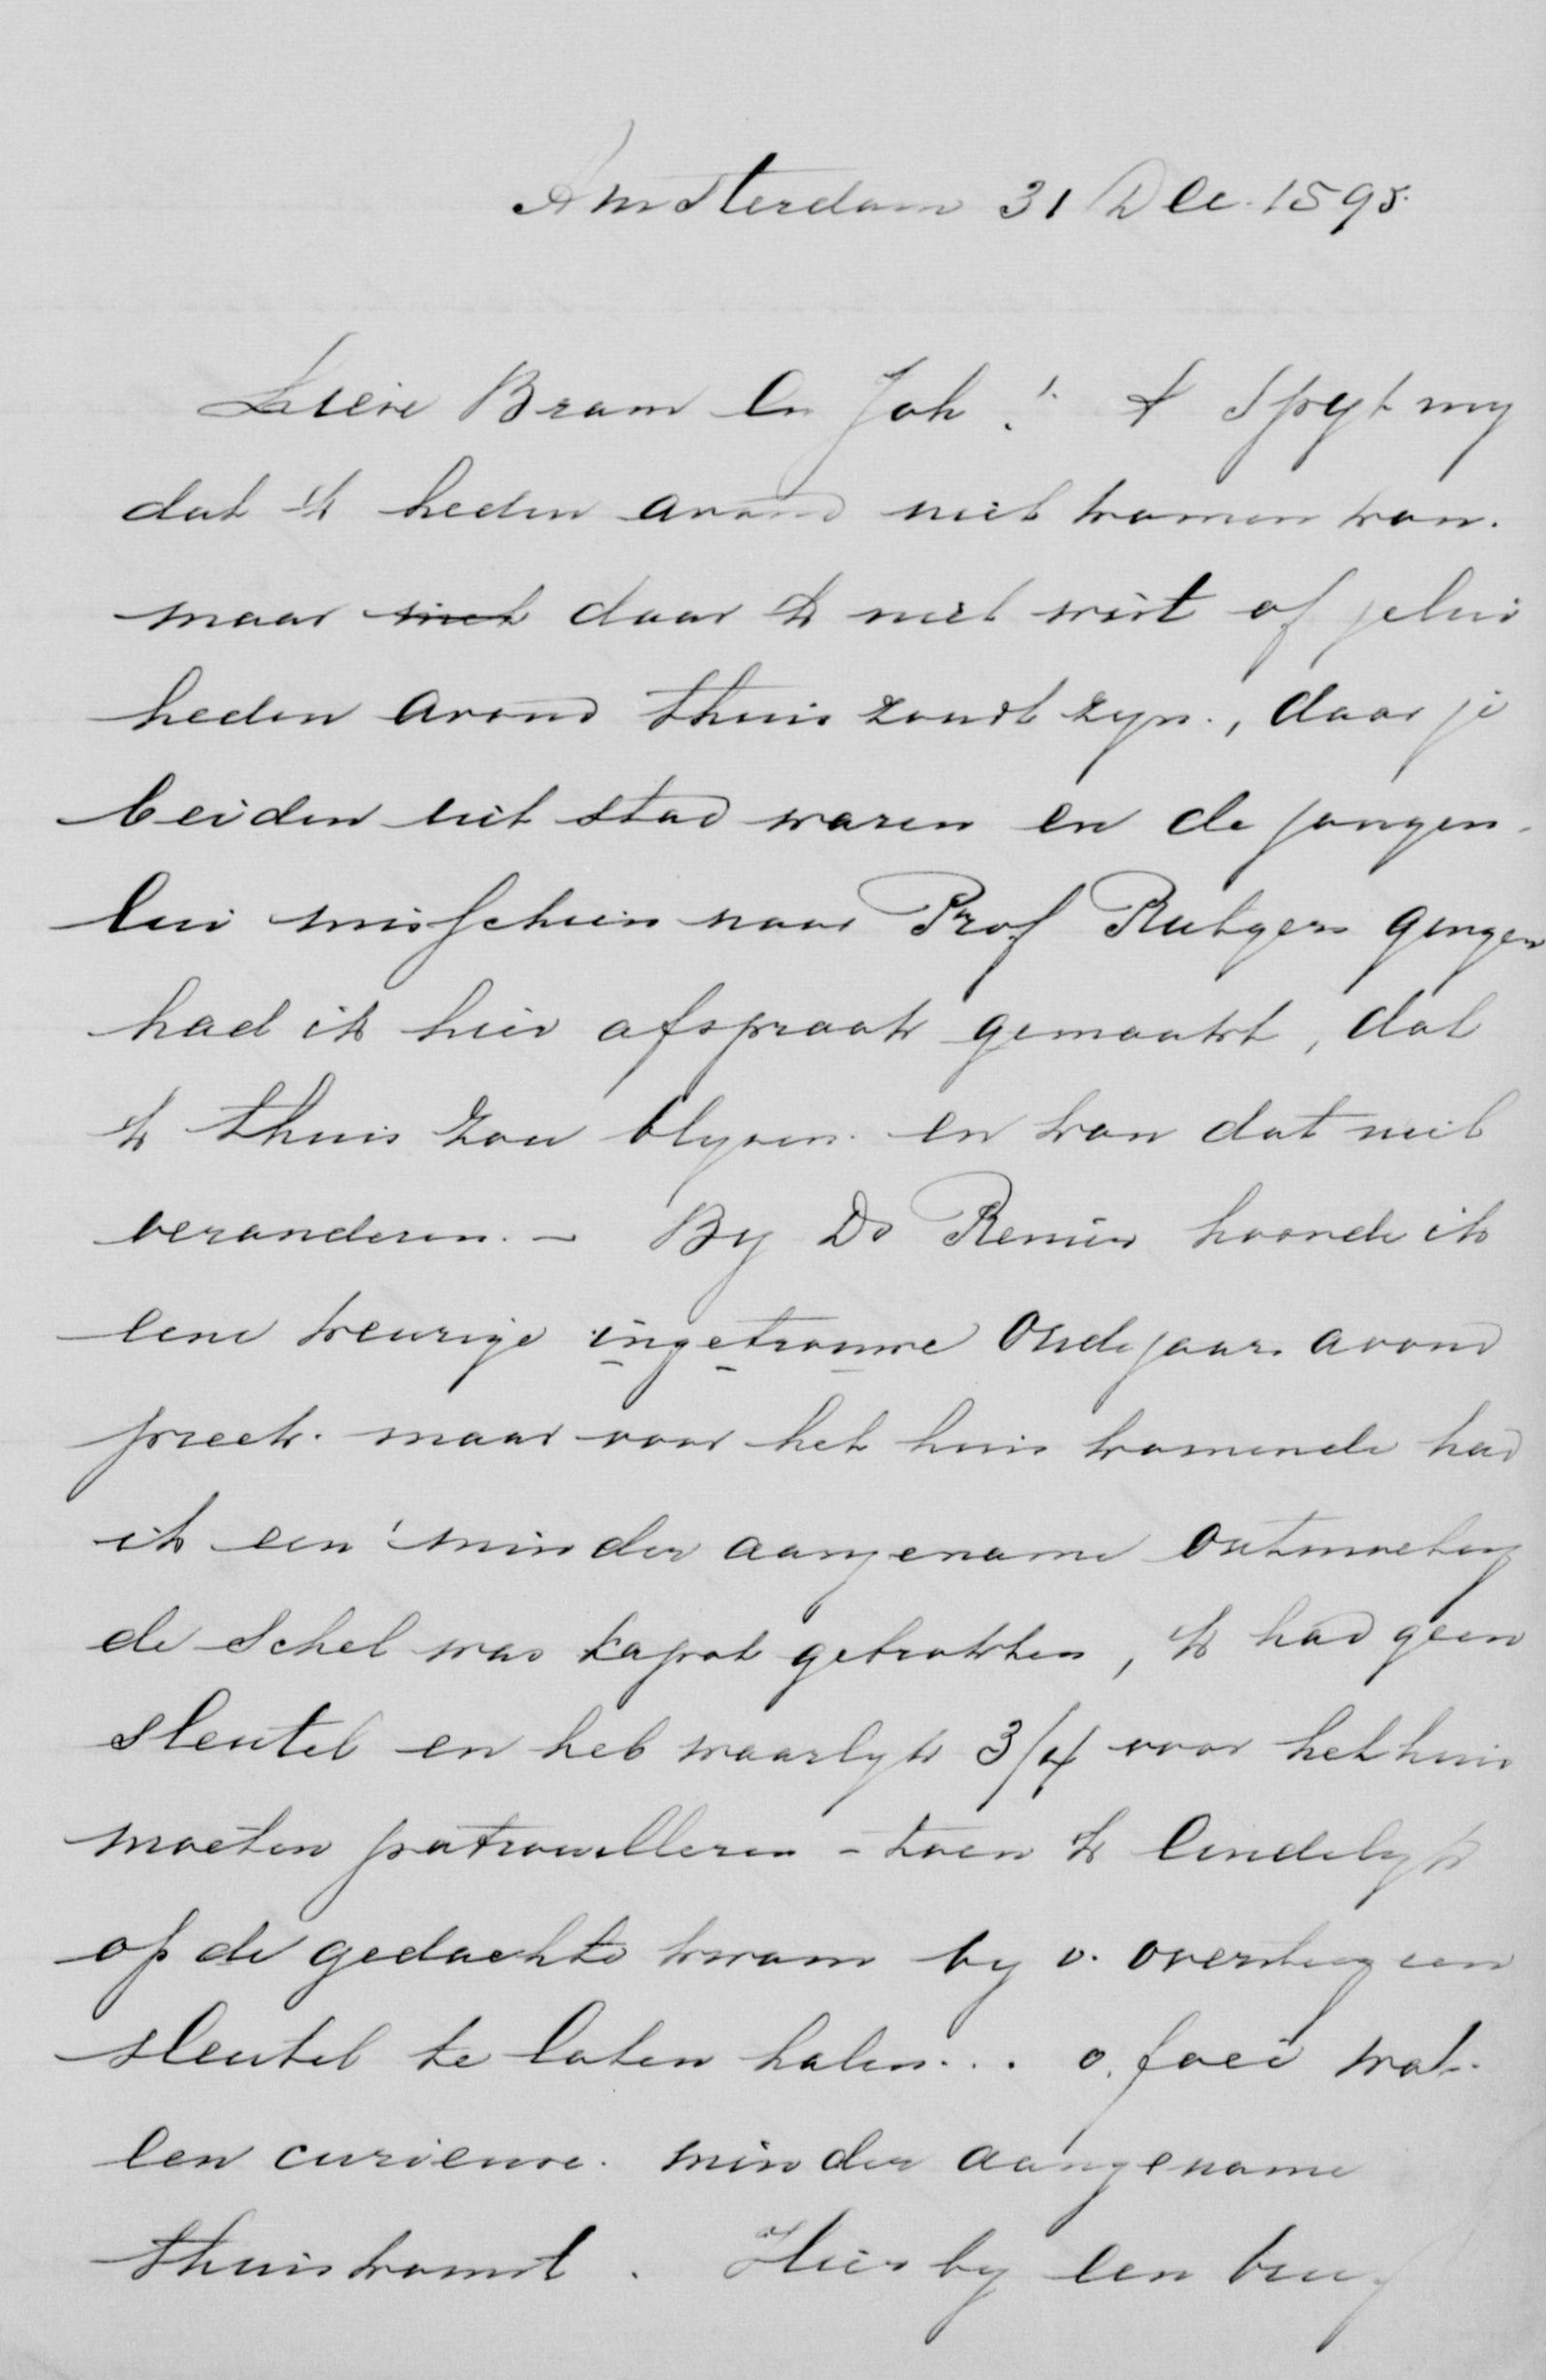 Amsterdam 31 Dec. 1895.
Lieve Bram en Joh! 't Spyt my
dat ik heden avond niet komen kan.
maar niet daar ik niet wist of jelui
heden avond thuis zoudt zyn., daar je
beiden uit stad waren en de jongen-
lui misschien naar Prof Rutgers gingen
had ik hier afspraak gemaakt, dat
ik thuis zou blyven. en kan dat niet
veranderen. - By Ds Renier hoorde ik
eene keurige ingetrouwe Oudejaars avond
preek. maar voor het huis komende had
ik een minder aangename ontmoeting
de Schel was kapot getrokken, ik had geen
sleutel en heb waarlyk 3/4 voor het huis
moeten patrouilleren - toen ik eindelyk
op de gedachte kwam by v. een
sleutel te laten halen... o. foei wat.
een curieuse. minder aangename
thuiskomst. Hierby een brief